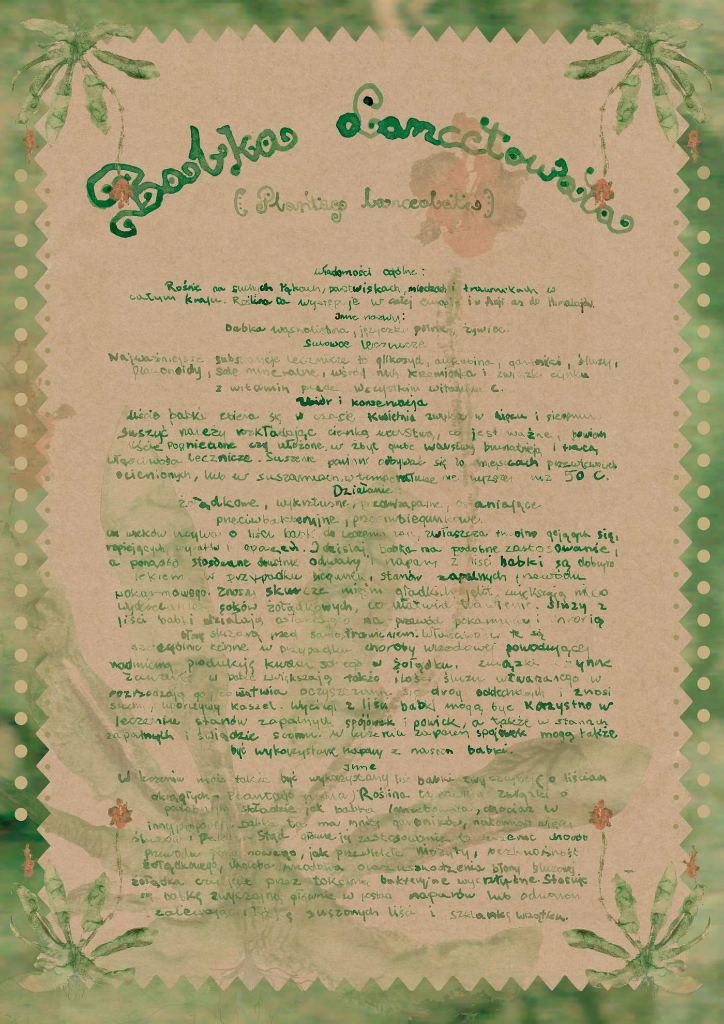 Babka Lancetowata
(Plantago lanceolata)
Wiadomości ogólne:
Rośnie na suchych łąkach, pastwiskach, miedzach i trawnikach w
całym kraju. Roślina ta występuje w całej Europie i w Azji aż do Himalajów.
Inne nazwy:
babka wąskolistna, języczki polne, żywiec.
Surowce lecznicze
Najważniejsze substancje lecznicze to glikozyd, aukubina, garbniki, śluzy,
flawonoidy, sole mineralne, wśród nich krzemionka i związki cynku
z witamin przede wszystkim witamina C.
Zbiór i konserwacja
Liście babki zbiera się w czasie kwitnienia zwykle w lipcu i sierpniu.
Suszyć należy rozkładając cienką warstwą, co jest ważne, bowiem
liście pogniecione czy ułożone w zbyt grube warstwy brunatnieją i tracą
właściwości lecznicze. Suszenie powinno odbywać się w miejscach przewiewnych
ocienionych, lub w suszarniach w temperaturze nie wyższej niż 50 C.
Działanie
żołądkowe, wykrztuśne, przeciwzapalne, osłaniające
przeciwbakteryjne, przeciwbiegunkowe.
Od wieków używano liści babki do leczenia ran, zwłaszcza trudno gojących się,
ropiejących, i oparzeń. I dzisiaj babka ma podobne zastosowanie,
a ponadto stosowane doustnie odwary i napary z liści babki są dobrym
lekiem w przypadku biegunki, stanów zapalnych przewodu
pokarmowego. Znoszą skurcze mięśni gładkich jelit, zwiększają nieco
wydzielanie soków żołądkowych, co ułatwia trawienie. Śluzy z
liści babki działają osłaniająco na przewód pokarmowy i chronią
błonę śluzową przed samotrawieniem. Właściwości te są
szczególnie cenne w przypadku choroby wrzodowej powodującej
nadmierną produkcję kwasu solnego w żołądku. Związki czynne
zawarte w babce zwiększają także ilość śluzu utwarzanego w
rozrzedzają go, co ułatwia oczyszczanie się dróg oddechowych i znosi
suchy, uporczywy kaszel. Wyciągi z liści babki mogą być korzystne w
leczeniu stanów zapalnych spojówek i powiek, a także w stanach
zapalnych i świądzie sromu. W leczeniu zapaleń spojówek mogą także
być wykorzystane napary z nasion babki.
Inne
W leczeniu może także być wykorzystany liść babki zwyczajnej (o liściach
okrągłych - Plantago major) Roślina ta zawiera związki o
podobnym składzie jak babka lancetowata, chociaż w
innej proporcji. babka ta ma mniej garbników, natomiast więcej
śluzów i pektyn. Stąd główne jej zastosowanie to leczenie chorób
przewodu pokarmowego, jak przewlekłe nieżyty, nadkwaśność
żołądkowego, choroba wrzodowa oraz uszkodzenia błony śluzowej
żołądka czy jelit przez toksyny bakteryjne wyszczypne. Stosuje
się babkę zwyczajną głównie w postaci naparów lub odwarów
zalewając łyżkę suszonych liści szklanką wrzątku.